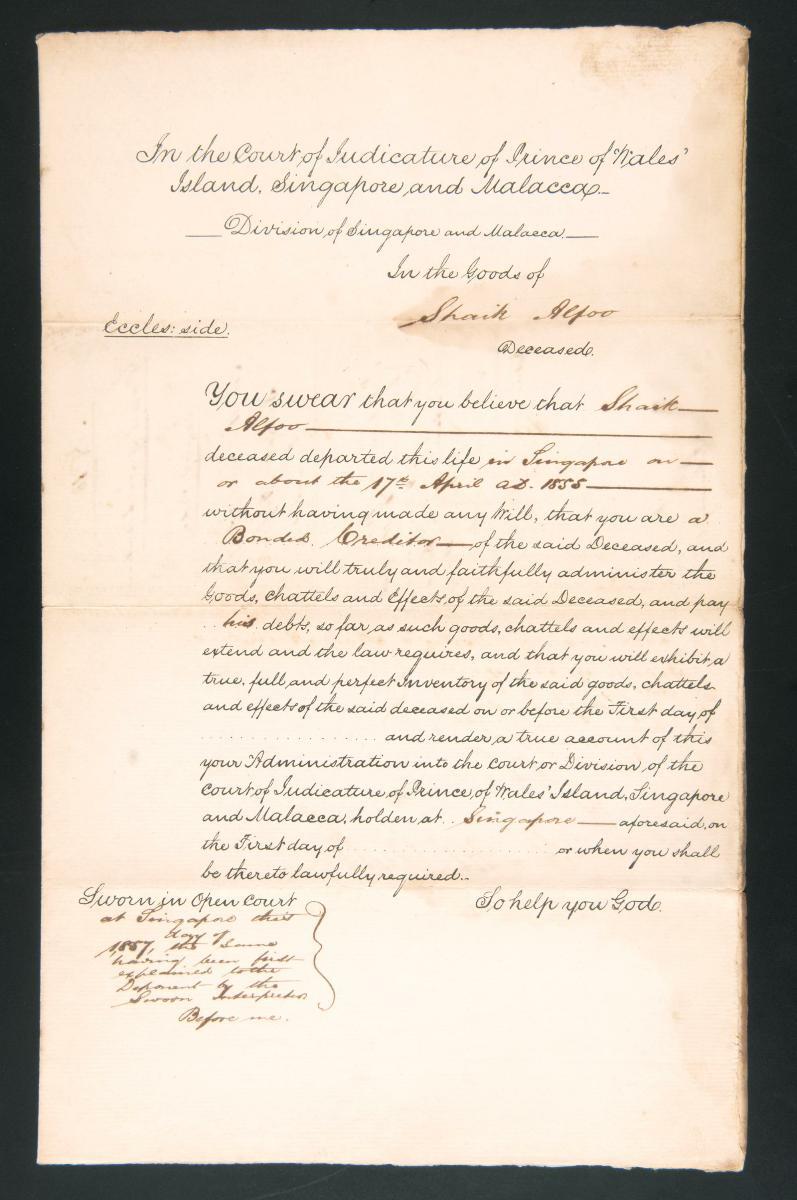 In the Court of Judicature of Prince of Wales'
Island, Singapore and Malacca
Division of Singapore and Malacca
In the Goods of
Shaik Alfoo
Eccles: side.
Deceased.
You swear that you believe that Shaik
Alfoo
deceased departed this life in Singapore on
or about the 17th April AD. 1855
without having made any Will, that you are a
Bonded Creditor of the said Deceased, and
that you will truly and faithfully administer the
Goods, chattels and Effects of the said Deceased, and pay
his debts, so far as such goods, chattels and effects will
extend and the law requires, and that you will exhibit a
true, full and perfect Inventory of the said goods, chattels
and effects of the said deceased on or before the First day of
and render a true account of this
your Administration into the court or Division of the
Court of Judicature of Prince of Wales' Island, Singapore
and Malacca, holden at Singapore aforesaid, on
the First day of or when you shall
be thereto lawfully required.
Sworn in Open Court
So help you God.
at Singapore this
day of
1857, the same
having been first
explained to the
Deponent by the
Sworn Interpreter
Before me.